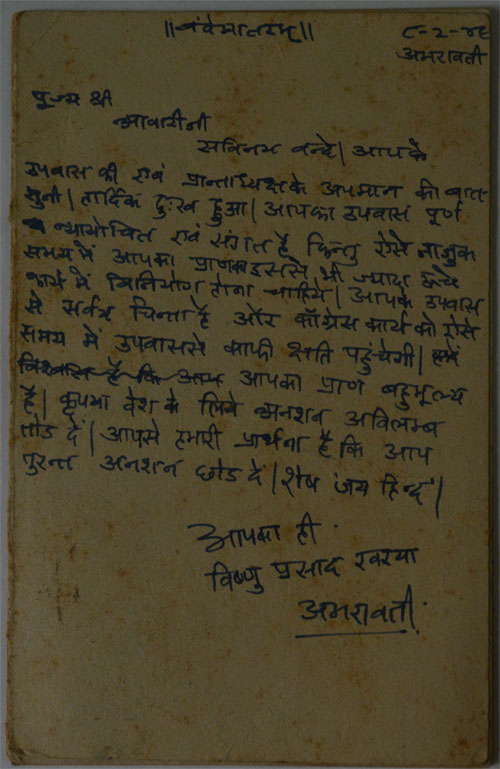 ||वंदेमातरम्||
८-२-४६
अमरावती
पूज्य श्री
आवारीजी
सविनय वन्दे| आपके
उपवास की एवं प्रान्ताध्यक्ष के अपमान की बात-
सुनी| हार्दिक दुःख हुआ| आपका उपवास पूर्ण
न्यायोचित एवं संगत है किन्तु ऐसे नाजुक
समय में आपका प्राणका इससे भी ज्यादा ऊंचे
कार्य में विनियोग होना चाहिये| आपके उपवास
से सर्वत्र चिन्ता है और कॉंग्रेस कार्य को ऐसे
समय में उपवाससे काफी क्षति पहुंचेगी| हमें
विश्वास है कि आप आपका प्राण बहुमूल्य
है| कृपया देश के लिये अनशन अविलम्ब
तोड दें| आपसे हमारी प्रार्थना है कि आप
तुरन्त अनशन छोड दें| शेष जय हिन्द|
आपका ही
विष्णु प्रसाद
अमरावती.